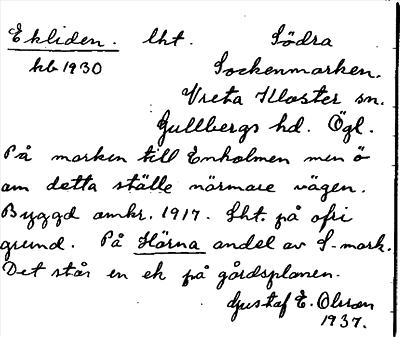 Ekliden. lht. Södra
kb 1930 Sockenmarken.
Vreta Kloster sn.
Gullbergs hd. Ögl.
På marken till Enholmen men ö
om detta ställe närmare vägen.
Byggd omkr. 1917. Lht. på ofri
grund. På Hörna andel av S. mark.
Det står en ek på gårdsplanen.
Gustaf E. Olsson
1937.